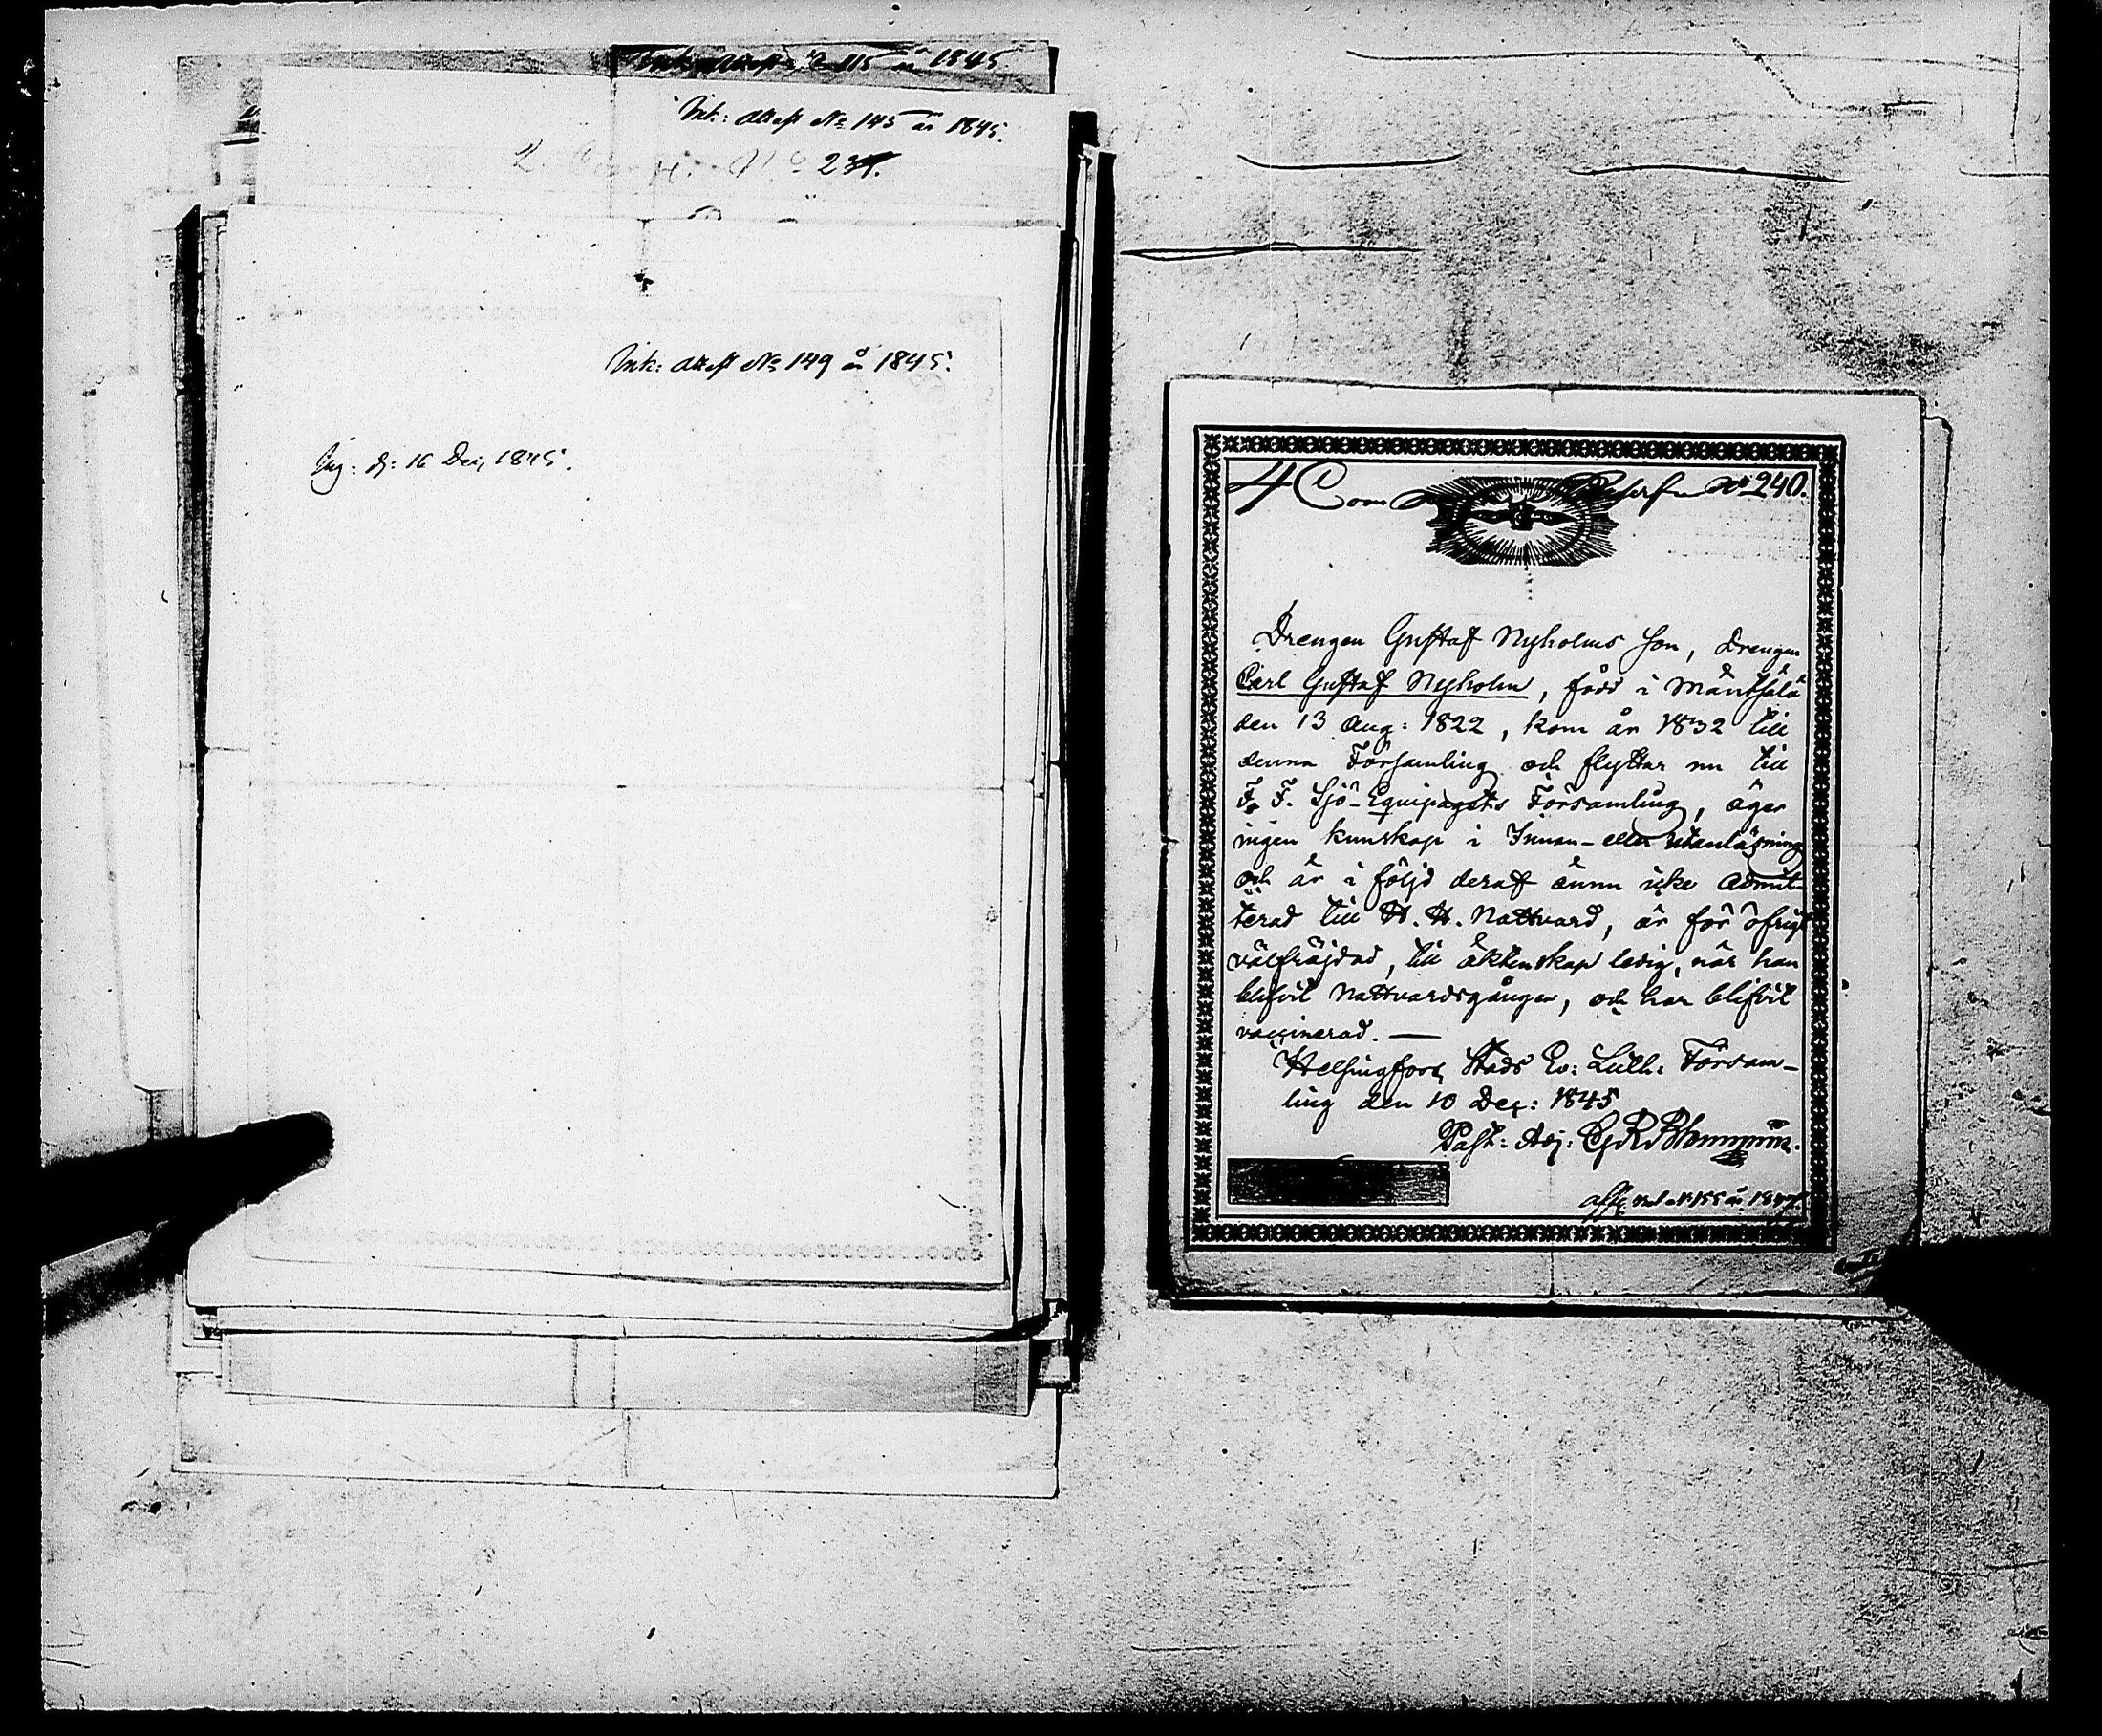 Ink: Attest No 115 år 1845
Ink: Attest No 145 år 1845.
No 239.
Ink: Attest No 149 år 1845.
Ing: d: 16 Dec, 1845.
4 Com No 240.
Drengen Gustaf Nyholms son, Drengen
Carl Gustaf Nyholm, född i Mäntsälä
den 13 Aug: 1822, kom år 1832 till
denna Församling och flyttar nu till
F. F. Sjö-Equipagets Församling, äger
ingen kunskap i Innan- eller Utanläsning
och är i följd deraf ännu icke admit-
terad till H. H. Nattvard, är för öfrigt
välfräjdad, till äktenskap ledig, när han
blifvit Nattvardsgången, och har blifvit
vaccinerad. —
Helsingfors Stads Ev: Luth: Försam-
ling den 10 Dec: 1845
Past: Adj: